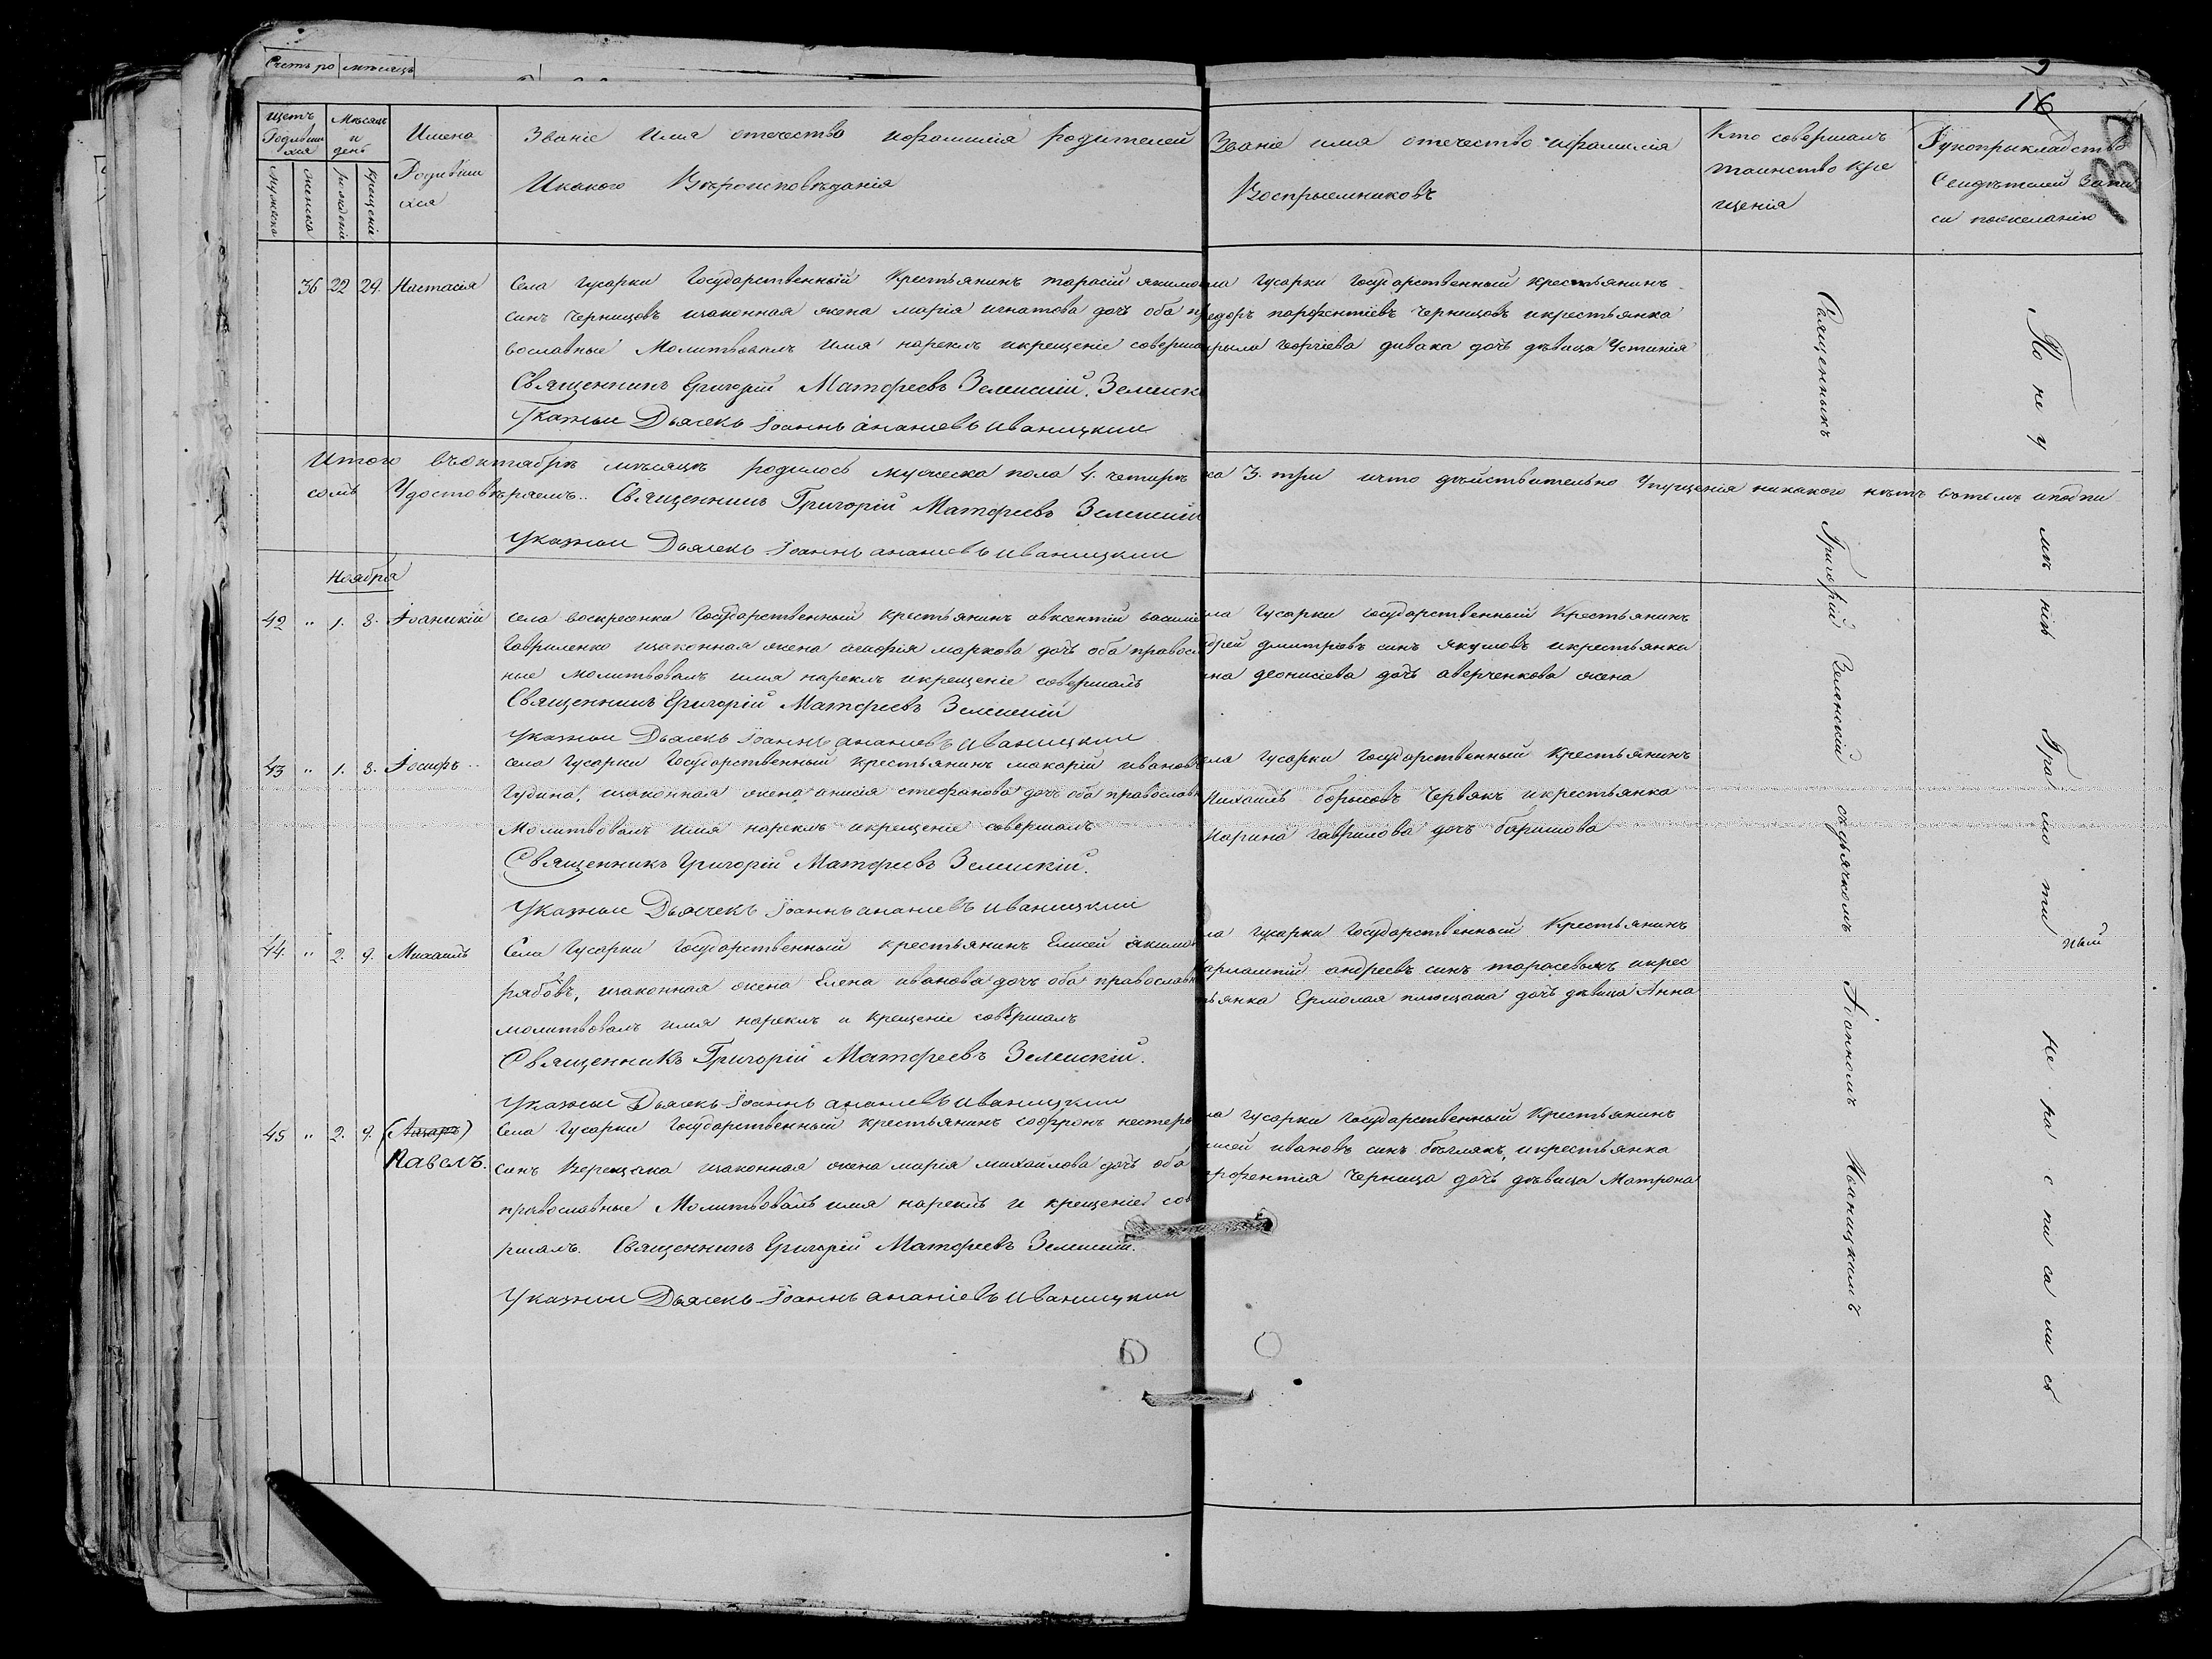 Счетъ ро мѣсяцъ
16
Щетъ Родивши хся
Мѣсяцъ и день
Имена Родивши хся
Званіе Имя отечество ифамилія родителей
Икакого Вѣроисповѣданія
Званіе имя отечество ифамилія
Воспрыемниковъ
Кто совершалъ
таинство Кре
щенія
Рукопрыкладство
Свидѣтелей Запи
си пожеланію
Мужеска
Женска
рожденіе
Крещеніе
36 22 29. Настасія
Села Гусарки Государственный Крестьянинъ тарасій якимо
синъ Чернцовъ изаконная жена марія игнатова дочь оба п
вославные Молитвовалъ Имя нареклъ икрещеніе соверша
Священникъ Григорій Матфеевъ Зеленскій.
Указныи Дьячекъ Іоаннъ ананиевъ иваницкии
ла Гусарки Государственный крестьянинъ
едоръ парфентіевъ Чернцовъ икрестьянка
рыла Георгіева дивака дочь дѣвица Устинія
Итого въоктябрѣ мѣсяцѣ родилось мужеска пола 4. четыре ка 3. три ичто дѣйствительно Упущенія никакого нѣтъ вътомъ иподпи
сомъ Удостовѣряемъ.. Священникъ Григорій Матфеевъ Зеленскій
Указныи Дьячекъ Іоаннъ ананиевъ иваницкии
Ноября
42 " 1. 8. Іоаникій
села воскресенки Государственный крестьянинъ авксентій василіе
Гавриленко изаконная жена агафія маркова дочь оба правосл
ные молитвовалъ имя нареклъ икрещеніе совершалъ
Священникъ Григорій Матфеевъ Зеленскій
Указныи Дьячекъ Іоаннъ ананиевъ иваницкии
ла Гусарки Государственный Крестьянинъ
дрей дмитріевъ синъ якушовъ икрестьянка
на деонисіева дочь аверченкова жена
43 " 1. 8. Іосифъ
села Гусарки Государственный крестьянинъ макарій ивановъ
Гудина, изаконная жена анисія стефанова дочь оба православн
Молитвовалъ имя нареклъ икрещеніе совершалъ
Священникъ Григорій Матфеевъ Зеленскій.
Указныи Дьячекъ Іоаннъ ананиевъ иваницкии
ела Гусарки Государственный Крестьянинъ
Михаилъ борисовъ Червякъ икрестьянка
Марина гаврилова дочь баришова
44. " 2. 9. Михаилъ
Села Гусарки Государственный крестьянинъ Елисей акимов
рябовъ, изаконная жена Елена иванова дочь оба православн
молитвовалъ имя нареклъ и крещеніе совершалъ
Священникъ Григорій Матфеевъ Зеленскій.
Указныи Дьячекъ Іоаннъ ананиевъ иваницкии
ла Гусарки Государственный Крестьянинъ
арлампій андреевъ синъ тарасевичъ икрес
ьянка Ермолая плющака дочь дѣвица Анна
45 " 2. 9. (Азаръ)
Павелъ.
Села Гусарки Государственный крестьянинъ софронъ нестеро
синъ Верещака изаконная жена марія михайлова дочь оба
православные Молитвовалъ имя нареклъ и крещеніе сов
ршалъ. Священникъ Григорій Матфеевъ Зеленскій.
Указныи Дьячекъ Іоаннъ ананіевъ иваницкии
ла Гусарки Государственный Крестьянинъ
исей ивановъ синъ богилякъ, икрестьянка
рфентія Черница дочь дѣвица Матрона
Священникъ Григорій Зеленскій съдьячкомъ Іоанномъ Иваницкимъ
По не у мѣ нію Гра мо ти ный не ра с пи са ли сь